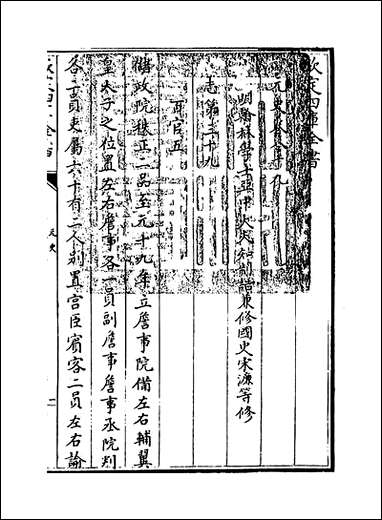 欽定四庫全書
元史卷八十九
明翰林學士亞中大夫知制誥兼修國史宋濂等修
志第三十九
百官五
儲政院秩正二品至元十九年立詹事院備左右輔翼
皇太子之位置左右詹事各一員副詹事詹事丞院判
各二員吏屬六十有二人别置宮臣賓客二員左右諭
元史